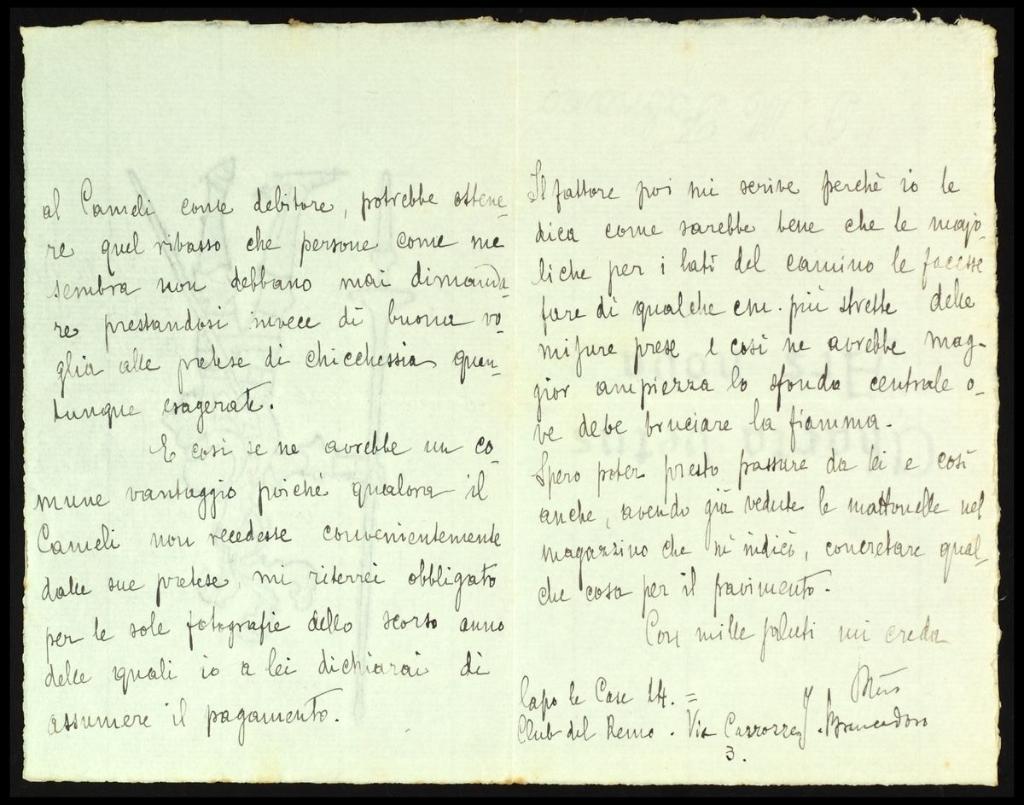 al Cameli come debitore, potrebbe ottene-
re quel ribasso che persone come me
sembra non debbano mai dimanda-
re prestandosi invece di buona vo-
glia alle pretese di chicchessia quan-
tunque esagerate.
E così se ne avrebbe un co-
mune vantaggio poichè qualora il
Cameli non recedesse convenientemente
dalle sue pretese, mi riterrei obbligato
per le sole fotografie dello scorso anno
delle quali io a lei dichiarai di
assumere il pagamento.
Il fattore poi mi scrive perchè io le
dica come sarebbe bene che le majo-
liche per i lati del camino le facesse
fare di qualche cm. più strette delle
misure prese e così ne avrebbe mag-
gior ampiezza lo sfondo centrale o-
ve debe bruciare la fiamma.
Spero poter presto passare da lei e così
anche, avendo già vedute le mattonelle nel
magazzino che mi indicò, concretare qual-
che cosa per il pavimento.
Con mille saluti mi creda
Capo le Case 14. =
Club del Remo. Via Carrozze
3.
Brancadoro